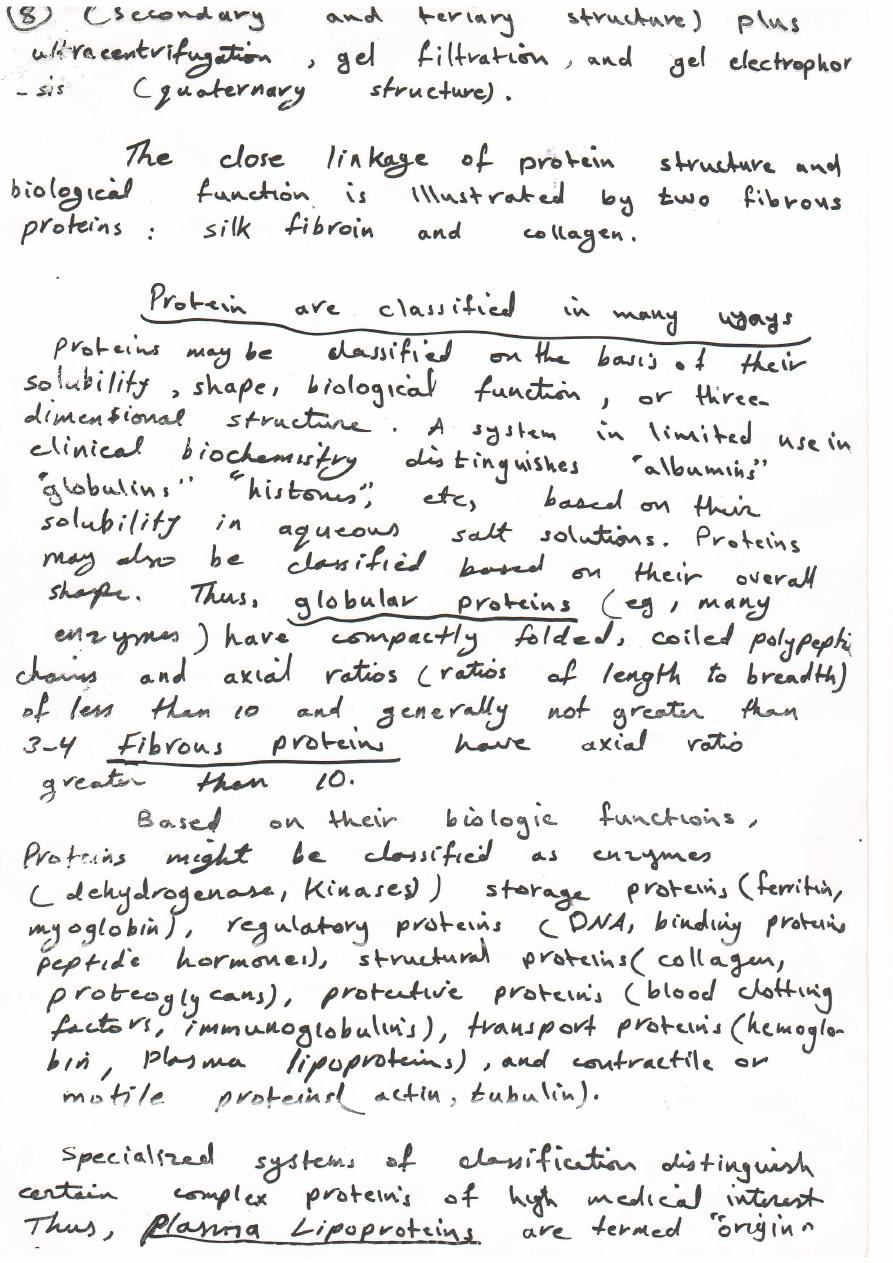 8 (secondary and teriary structure) plus
ultracentrifugation , gel filtration , and gel electrophor
- sis (quaternary structure).
The close linkage of protein structure and
biological function is illustrated by two fibrous
proteins : silk fibroin and collagen.
Protein are classified in many ways
Proteins may be classified on the basis of their
solubility , shape, biological function , or three-
dimensional structure . A system in limited use in
clinical biochemistry distinguishes "albumins"
"globulins" "histones", etc, based on their
solubility in aqueous salt solutions. Proteins
may also be classified based on their overall
shape. Thus, globular proteins (eg, many
enzymes) have compactly folded, coiled polypepti
chains and axial ratios (ratios of length to breadth)
of less than 10 and generally not greater than
3-4 Fibrous proteins have axial ratio
greater than 10.
Based on their biologic functions,
Proteins might be classified as enzymes
(dehydrogenase, Kinases)) storage proteins (ferritin,
myoglobin), regulatory proteins (DNA, binding proteins
peptide hormones), structural proteins( collagen,
proteoglycans), protective proteins (blood clotting
factors, immunoglobulins), transport proteins (hemoglo-
bin, plasma lipoproteins) , and contractile or
motile proteins( actin, tubulin).
Specialized systems of classification distinguish
certain complex proteins of high medical interest
Thus, Plasma Lipoproteins are termed "origin